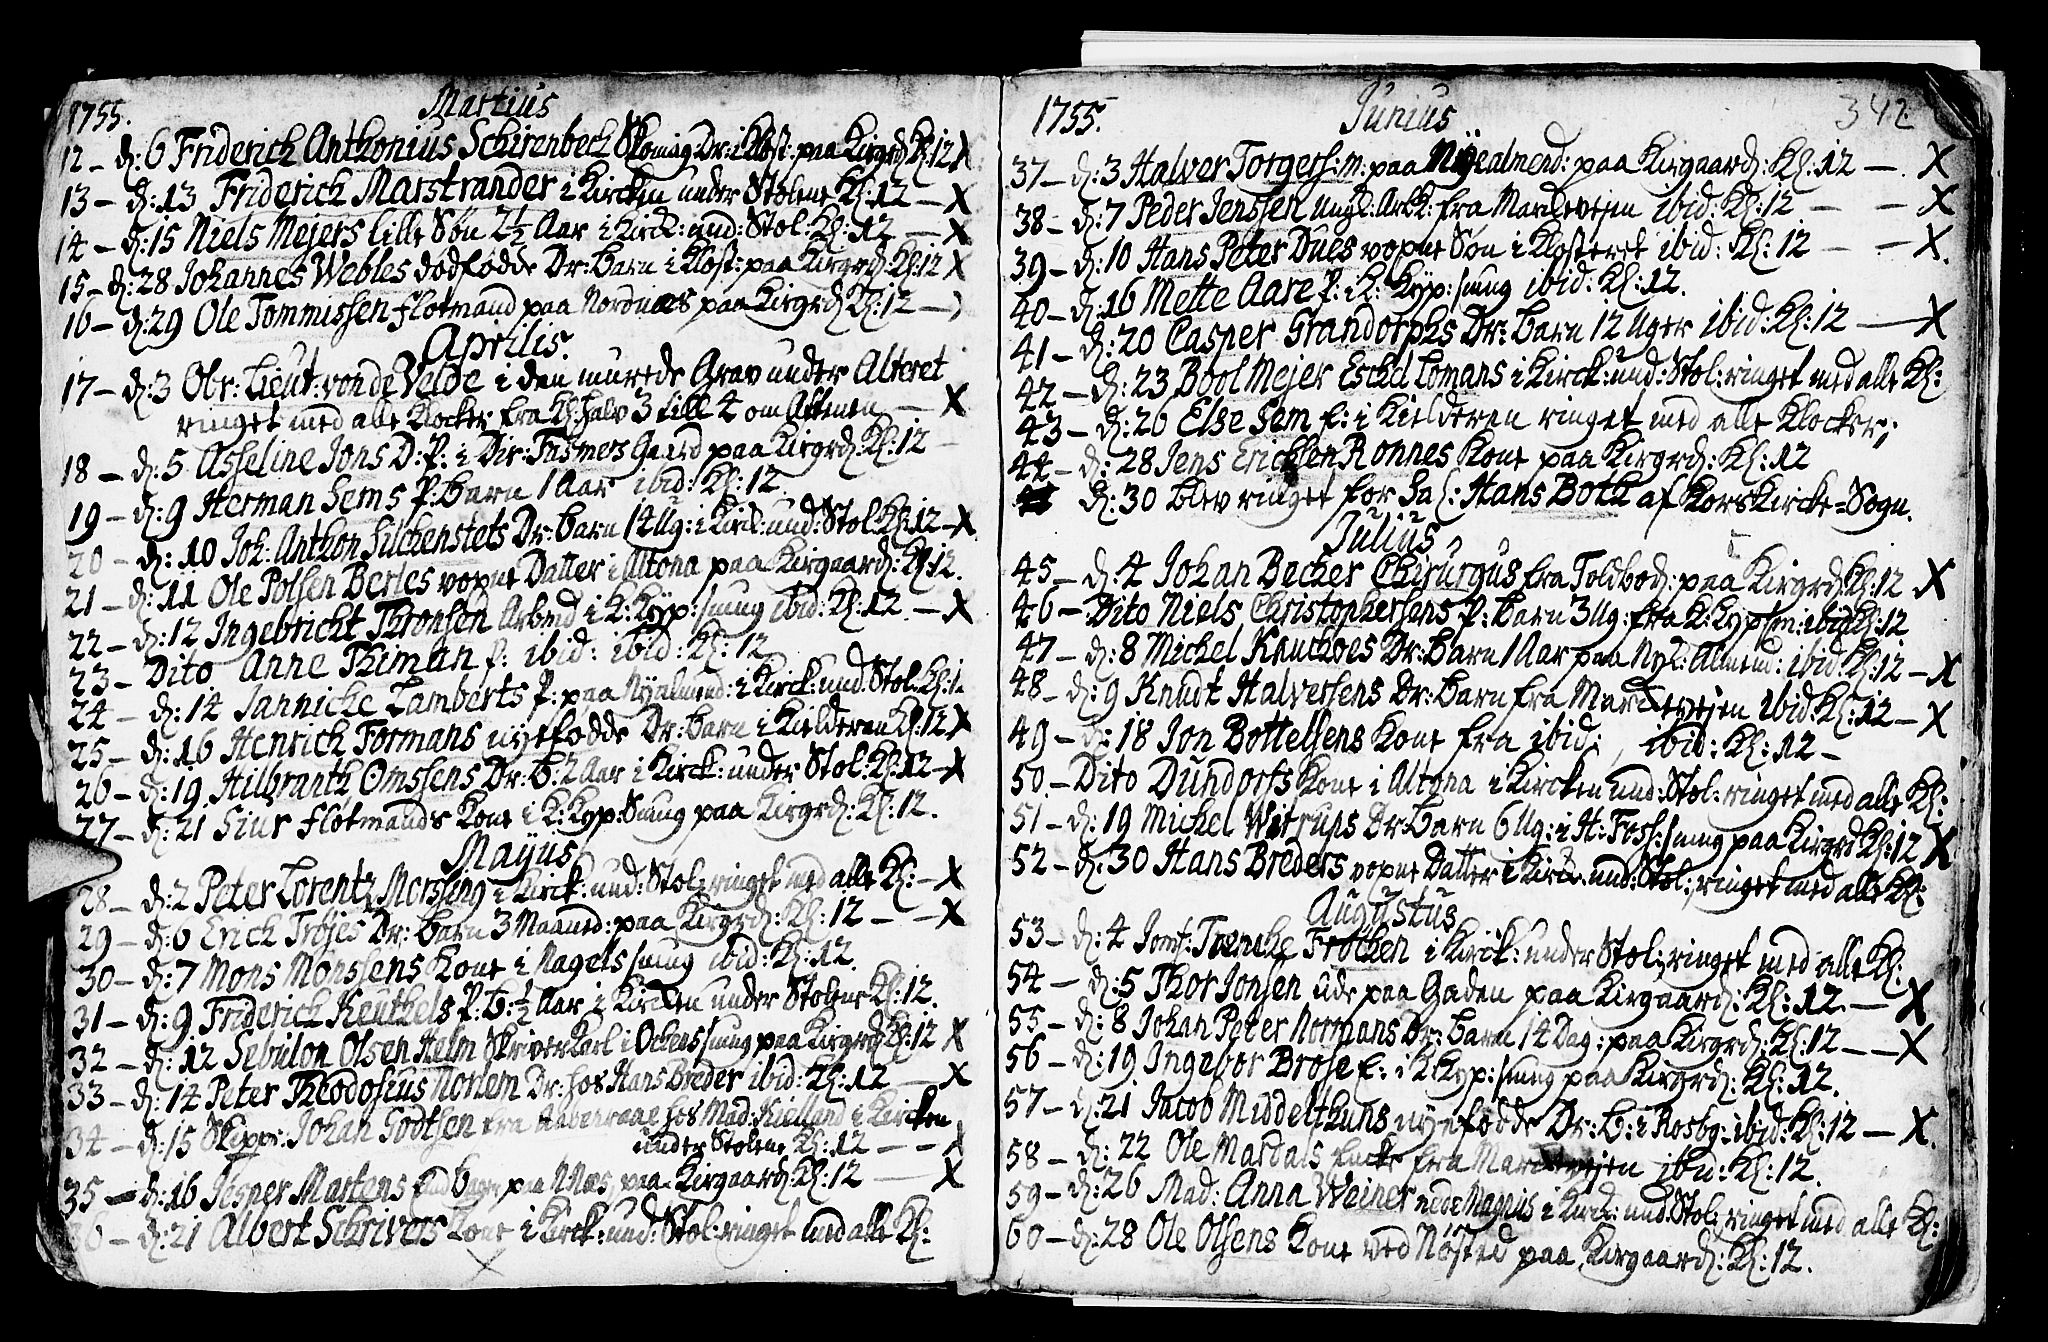 1755. Martius
12 – d: 6 Friderich Anthonius Schirenbech Skomag Dr: i Klost: paa Kirgrd Kl: 12 X
13 – d: 13 Friderich Marstrander i Kircken under Stolene Kl: 12 – X
14 – d: 15 Niels Mejers lille Søn 2 1/2 Aar i Kirck: und: Stol: Kl: 12 – X
15 – d: 28 Johannes Webles dødfødde Dr: Barn i Klost: paa Kirgrd: Kl: 12 X
16 – d: 29 Ole Tommissen flotmand paa Nordnæs paa Kirgrd Kl: 12 –
Aprilis.
17 – d: 3 Obr: Lieut: von de Velde i den murede Grav under Alteret
ringet med alle Klocker fra Kl: halv 3 till 4 om Aftenen – X
18 – d: 5 Asseline Jons D: P: i Dir: Fasmers Gaard paa Kirgrd: Kl: 12 –
19 – d: 9 Herman Sems P: Barn 1 Aar ibid: Kl: 12
20 – d: 10 Joh: Anthon Silchenstets Dr: Barn 14 Ug: i Kirck: und: Stol: Kl: 12 – X
21 – d: 11 Ole Polsen Berles voxne Datter i Altona paa Kirgaard: Kl: 12.
22 – d: 12 Ingebricht Thronsen Arbeid i K: Kyp: smug ibid: Kl: 12 – X
23 – Dito Anne Thiman f: ibid: ibid: Kl: 12
24 – d: 14 Jannicke Lamberts P: paa Nyalmend: i Kirck: und: Stol: Kl: 1
25 – d: 16 Henrich Formans nyefødde Dr: Barn i Kielderen Kl: 12 X
26 – d: 19 Hilbranth Omssens Dr: B: 2 Aar i Kirck: under Stol: Kl: 12 – X
27 – d: 21 Siur flotmands Kone i K: Kyp: Smug paa Kirgrd: Kl: 12.
Mayus
28 – d: 2 Peter Lorentz Morssing i Kirck: und: Stol: ringet med alle Kl: – X
29 – d: 6 Erich Trøjes Dr: Barn 3 Maaned: paa Kirgrd: Kl: 12 – – X
30 – d: 7 Mons Monssens Kone i Nagels smug ibid: Kl: 12.
31 – d: 9 Friderich Keuthels P: B: 1/2 Aar i Kircken under Stolene Kl: 12.
32 – d: 12 Sebulon Olsen Helm Skriverkarl i Ockens smug paa Kirgrd: Kl: 12 X
33 – d: 14 Peter Theodosius Horlem Dr: hos Hans Breder ibid: Kl: 12 – X
34 – d: 15 Skippr: Johan Godtsen fra Aabenraae hos Mad: Kielland i Kircken
under Stolene Kl: 12 – – X
35 – d: 16 Jesper Martens paa Næs, paa Kirgaard: Kl: 12 – X
36 – d: 21 Albert Schrivers Kone i Kirck: und: Stol: ringet med alle Kl:
X
1755. Junius 342
37 – d: 3 Halver Torgers: m: paa Nÿealmend: paa Kirgaard: Kl: 12 – X
38 – d: 7 Peder Jenssen ungk: Arb: fra Marckevejen ibid: Kl: 12 – – X
39 – d: 10 Hans Peter Dues voxne Søn i Klosteret ibid: Kl: 12 – – X.
40 – d: 16 Mette Aare P: i K: Kyp: smug ibid: Kl: 12.
41 – d: 20 Casper Grandorphs Dr: Barn 12 Uger ibid: Kl: 12 – X
42 – d: 23 Bool Mejer Eschel Lomans i Kirck: und: Stol: ringet med alle Kl:
43 – d: 26 Else Sem E: i Kielderen ringet med alle Klocker;
44 – d: 28 Jens Ericksen Ronnes Kone paa Kirgrd: Kl: 12
d: 30 blev ringet for Sal: Hans Both af KorsKircke-Sogn.
Julius
45 – d: 4 Johan Becker Chirurgus fra Toldbod: paa Kirgrd Kl: 12 X
46 – Dito Niels Christophersens P: Barn 3 Ug: fra K: Kyp sm: ibid Kl: 12
47 – d: 8 Michel Knuthoes Dr: Barn 1 Aar paa Nye: Almend: ibid: Kl: 12 – X
48 – d: 9 Knudt Halvessens Dr: Barn fra Marckevejen ibid: Kl: 12 – X
49 – d: 18 Jon Bottelsens Kone fra ibid: ibid: Kl: 12 –
50 – Dito Dundorfs Kone i Altona i Kircken und: Stol: ringet med alle Kl:
51 – d: 19 Michel Witrups Dr Barn 6 Ug: i H: Foss: smug paa Kirgrd Kl: 12 X
52 – d: 30 Hans Breders voxne Datter i Kirck: und: Stol: ringet med alle Kl:
Augustus
53 – d: 4 Jomf: Trencke Frochen i Kirck: under Stol: ringet med alle Kl:
54 – d: 5 Thor Jonsen ude paa Gaden paa Kirgaard: Kl: 12 – X
55 – d: 8 Johan Peter Normans Dr: Barn 14 Dag: paa Kirgrd: Kl: 12 – – X
56 – d: 19 Ingebor Brose E: i K: Kyp: smug paa Kirgrd: Kl: 12.
57 – d: 21 Jacob Middelthuns nyefødde Dr: B: i Rosbg: ibid: Kl: 12 – X.
58 – d: 22 Ole Mardals Encke fra Marckevejen ibid: Kl: 12.
59 – d: 26 Mad: Anna Weiner nede Magnus i Kirck: und: Stol: ringet med alle Kl:
60 – d: 28 Ole Olsens Kone ved Nøsted paa Kirgaard: Kl: 12.